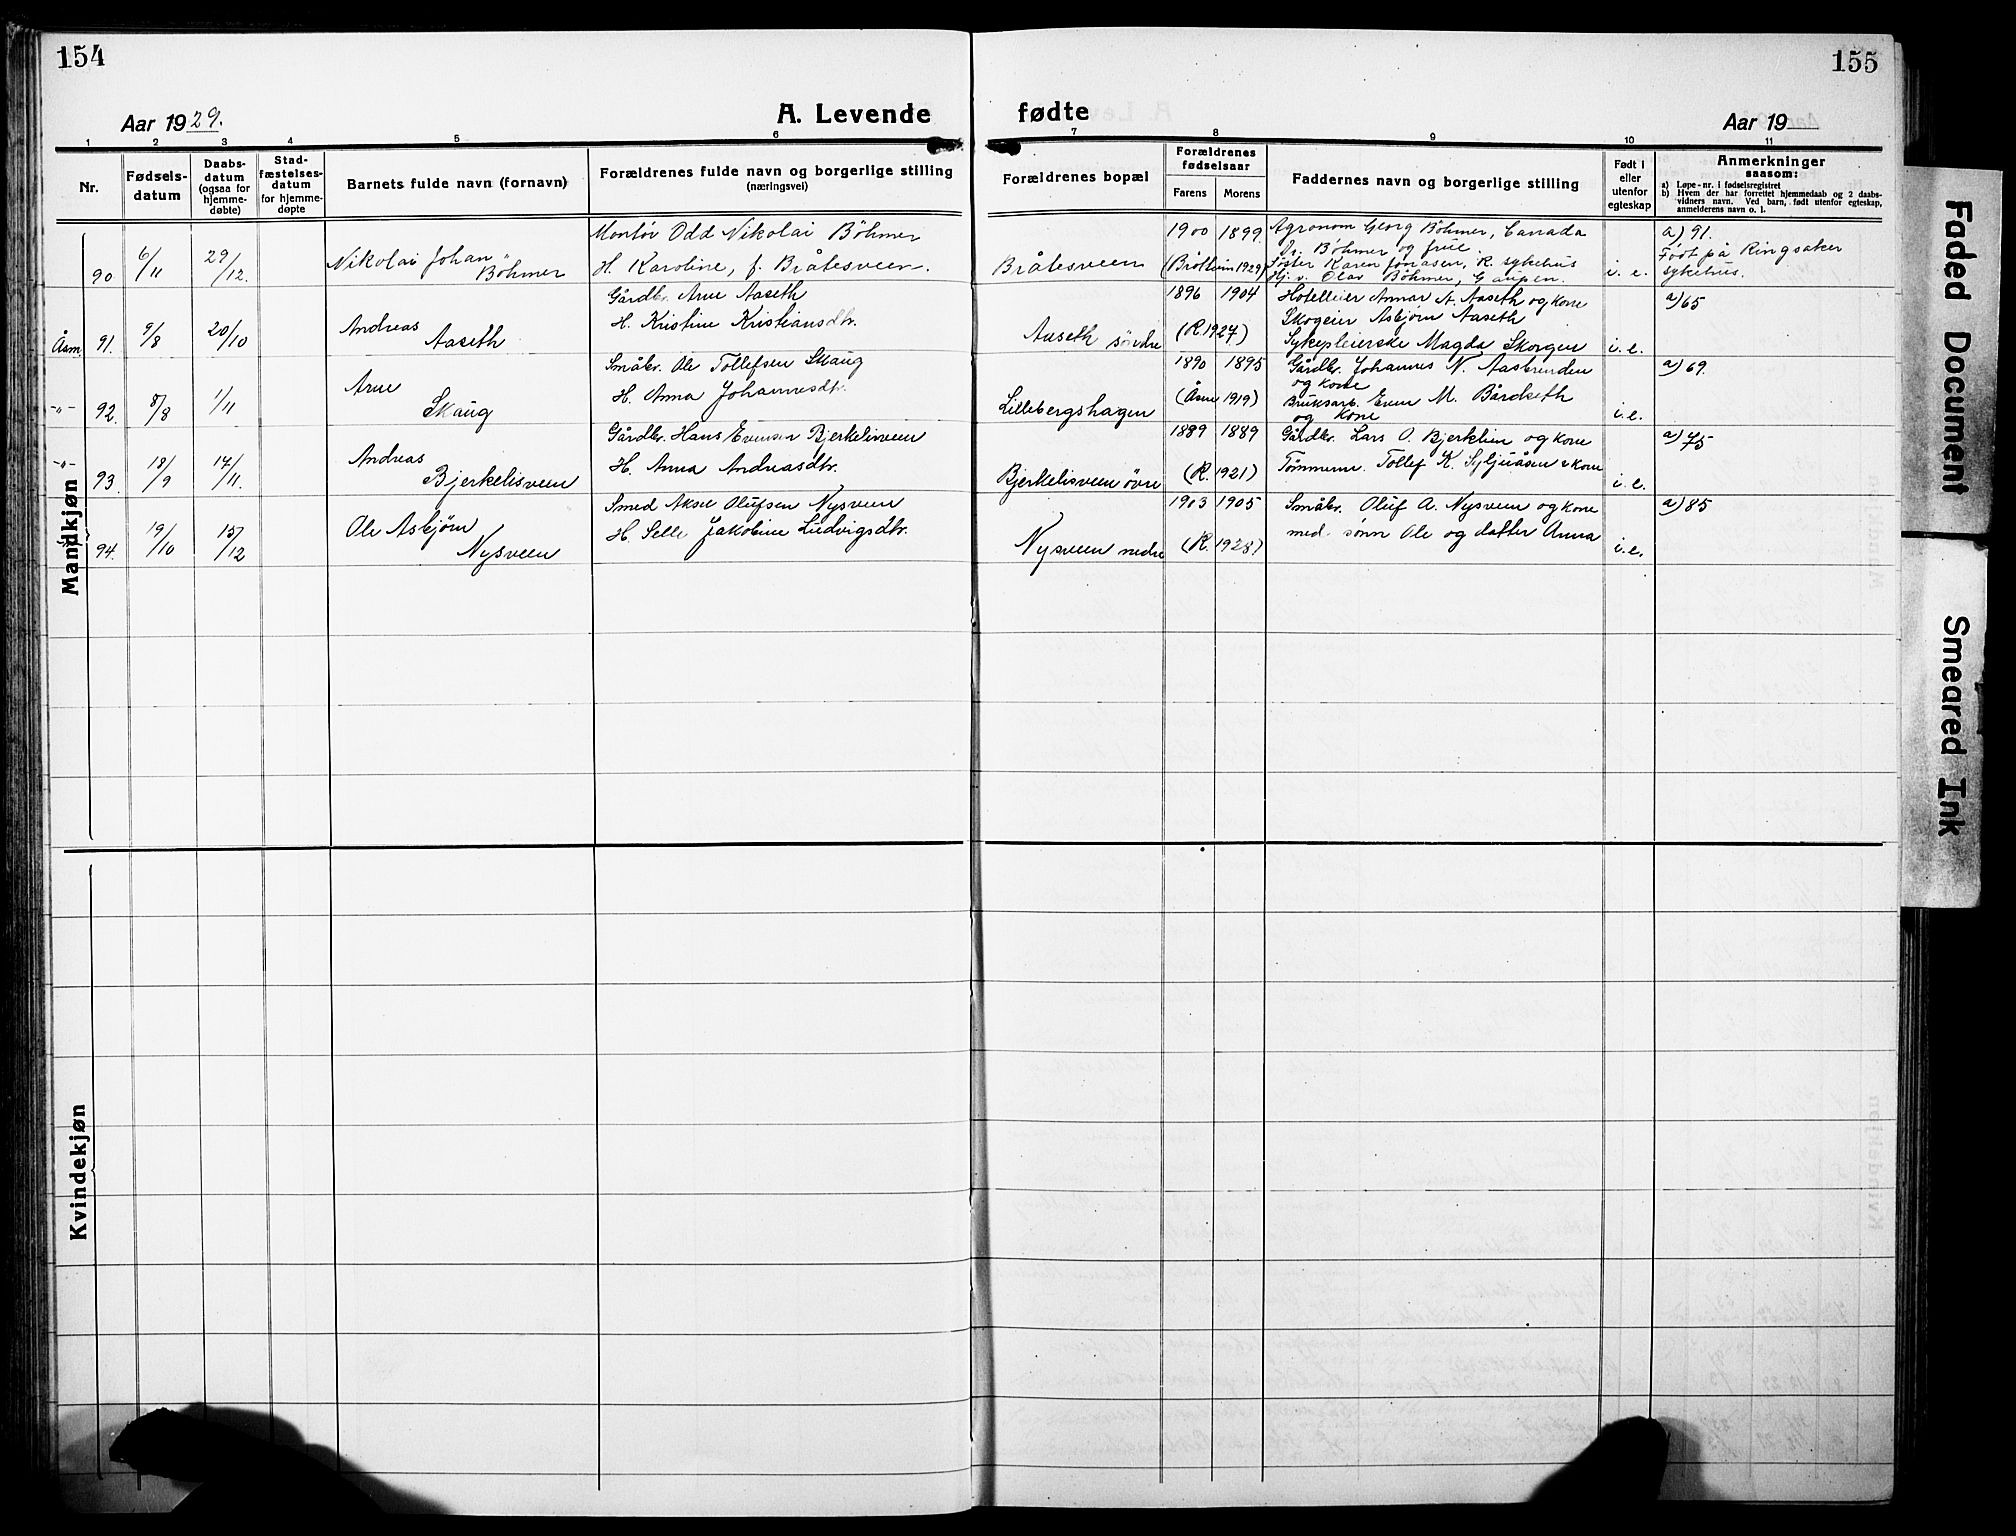 154
155
Aar 1929.
A. Levende
fødte
Aar 19
1 2 3 4 5 6 7 8 9 10 11
Nr.
Fødsels-
datum
Daabs-
datum
(ogsaa for
hjemme-
døbte)
Stad-
fæstelses-
datum
for hjemme-
døpte
Barnets fulde navn (fornavn)
Forældrenes fulde navn og borgerlige stilling
(næringsvei)
Forældrenes bopæl
Forældrenes
fødselsaar
Farens Morens
Faddernes navn og borgerlige stilling
Født i
eller
utenfor
egteskap
Anmerkninger
saasom:
a) Løpe-nr. i fødselsregistret
b) Hvem der har forrettet hjemmedaab og 2 daabs-
vidners navn. Ved barn, født utenfor egteskap,
anmelderens navn o. l.
Mandkjøn
90 6/11 29/12. Nikolai Johan
Böhmer
Montør Odd Nikolai Böhmer
H. Karoline, f. Bråtesveen.
Bråtesveen
1900 1899.
(Brøttum 1929)
Agronom Georg Böhmer, Canada
Dr. Böhmer og frue.
Søster Karen Jonasen, R. sykehus
Hj. v. Olav Böhmer, Gaupen.
i. e.
a) 91.
Født på Ringsaker
sykehus.
Åsm. 91. 9/8 20/10 Andreas
Aaseth
Gårdbr. Arne Aaseth
H. Kristine Kristiansdtr.
Aaseth søndre
1896 1904
(R. 1927)
Hotelleier Annar A. Aaseth og kone
Skogeier Asbjørn Aaseth
Sykepleierske Magda Skorgen
i. e.
a) 65
-"- 92. 8/8 1/11 Arne
Skaug
Småbr. Ole Tollefsen Skaug
H. Anna Johannesdtr.
Lillebergshagen
1890 1895
(Åsm 1919)
Gårdbr. Johannes N. Aasbrenden
og kone
Bruksarb. Even M. Bårdseth
og kone
i. e.
a) 69.
-"- 93. 18/9 17/11. Andreas
Bjerkelisveen
Gårdbr. Hans Evensen Bjerkelisveen
H. Anna Andreasdtr.
Bjerkelisveen øvre
1889 1889
(R. 1921)
Gårdbr. Lars O. Bjerklien og kone
Tømmerm. Tollef K. Syljuåsen & kone
i. e.
a) 75
94. 19/10 15/12 Ole Asbjørn
Nysveen
Smed Aksel Olufsen Nysveen
H. Selle Jakobine Ludvigsdtr.
Nysveen nedre
1903 1905
(R. 1928.)
Småbr. Oluf A. Nysveen og kone
med sønn Ole og datter Anna
i. e.
a) 85
Kvindekjøn
Faded Document
Smeared Ink